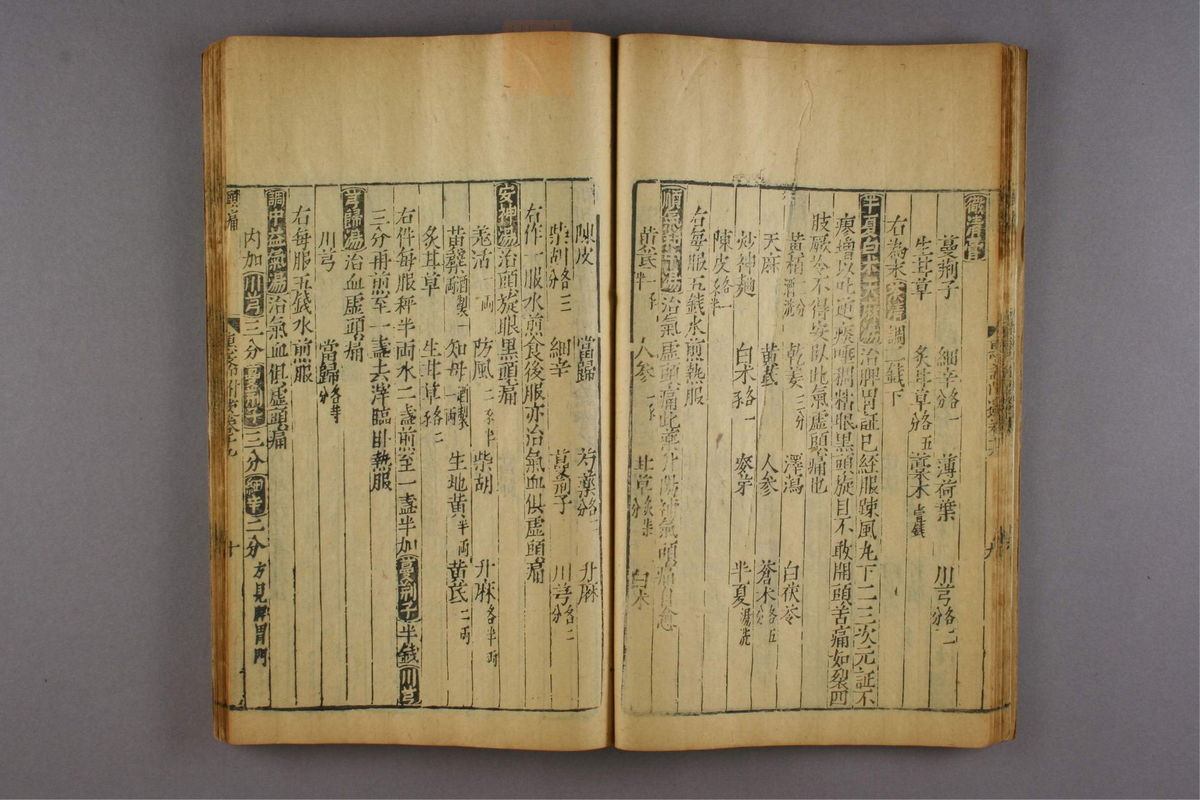 清膏
蔓荊子 細辛各一分 薄荷葉 川芎各二分
生甘草 炙甘草各五分 藁本一錢
右為末茶清調二錢下
半夏白术天麻湯治脾胃証已經服踈風丸下二三次元証不
瘳增以吐逆痰唾稠粘眼黑頭旋目不敢開頭苦痛如裂四
肢厥冷不得安臥此氣虛頭痛也
黃栢二分酒洗 乾姜三分 澤瀉 白茯苓
天麻 黃芪 人參 蒼术各五分
炒神麯 白术各一錢 麥芽 半夏湯洗
陳皮各一錢半
右每服五錢水煎熱服
順氣和中湯治氣虛頭痛此藥升陽補氣頭痛自愈
黃芪一錢半 人參一錢 甘草炙七分 白术
陳皮 當歸 芍藥各五分 升麻
柴胡各三分 細辛 蔓荊子 川芎各二分
右作一服水煎食後服亦治氣血俱虛頭痛
安神湯治頭旋眼黑頭痛
羌活一兩 防風二錢半 柴胡 升麻各半兩
黃蘗酒製一兩 知母酒製一兩 生地黃半兩 黃芪二兩
炙甘草 生甘草各二錢
右件每服秤半兩水二盞煎至一盞半加蔓荊子半錢川芎
三分再煎至一盞去滓臨臥熱服
芎歸湯治血虛頭痛
川芎 當歸各等分
右每服五錢水煎服
調中益氣湯治氣血俱虛頭痛
內加川芎三分蔓荊子三分細辛二分方見脾胃門
頭痛 十